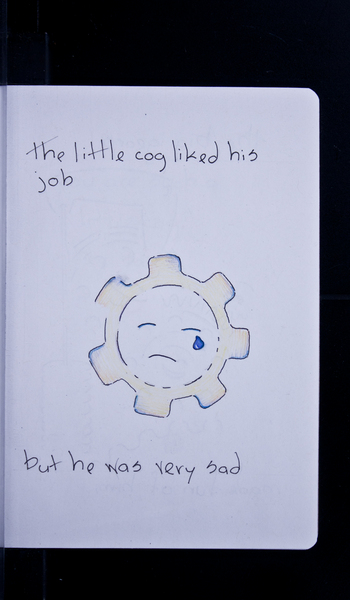 the little cog liked his
job
but he was very sad